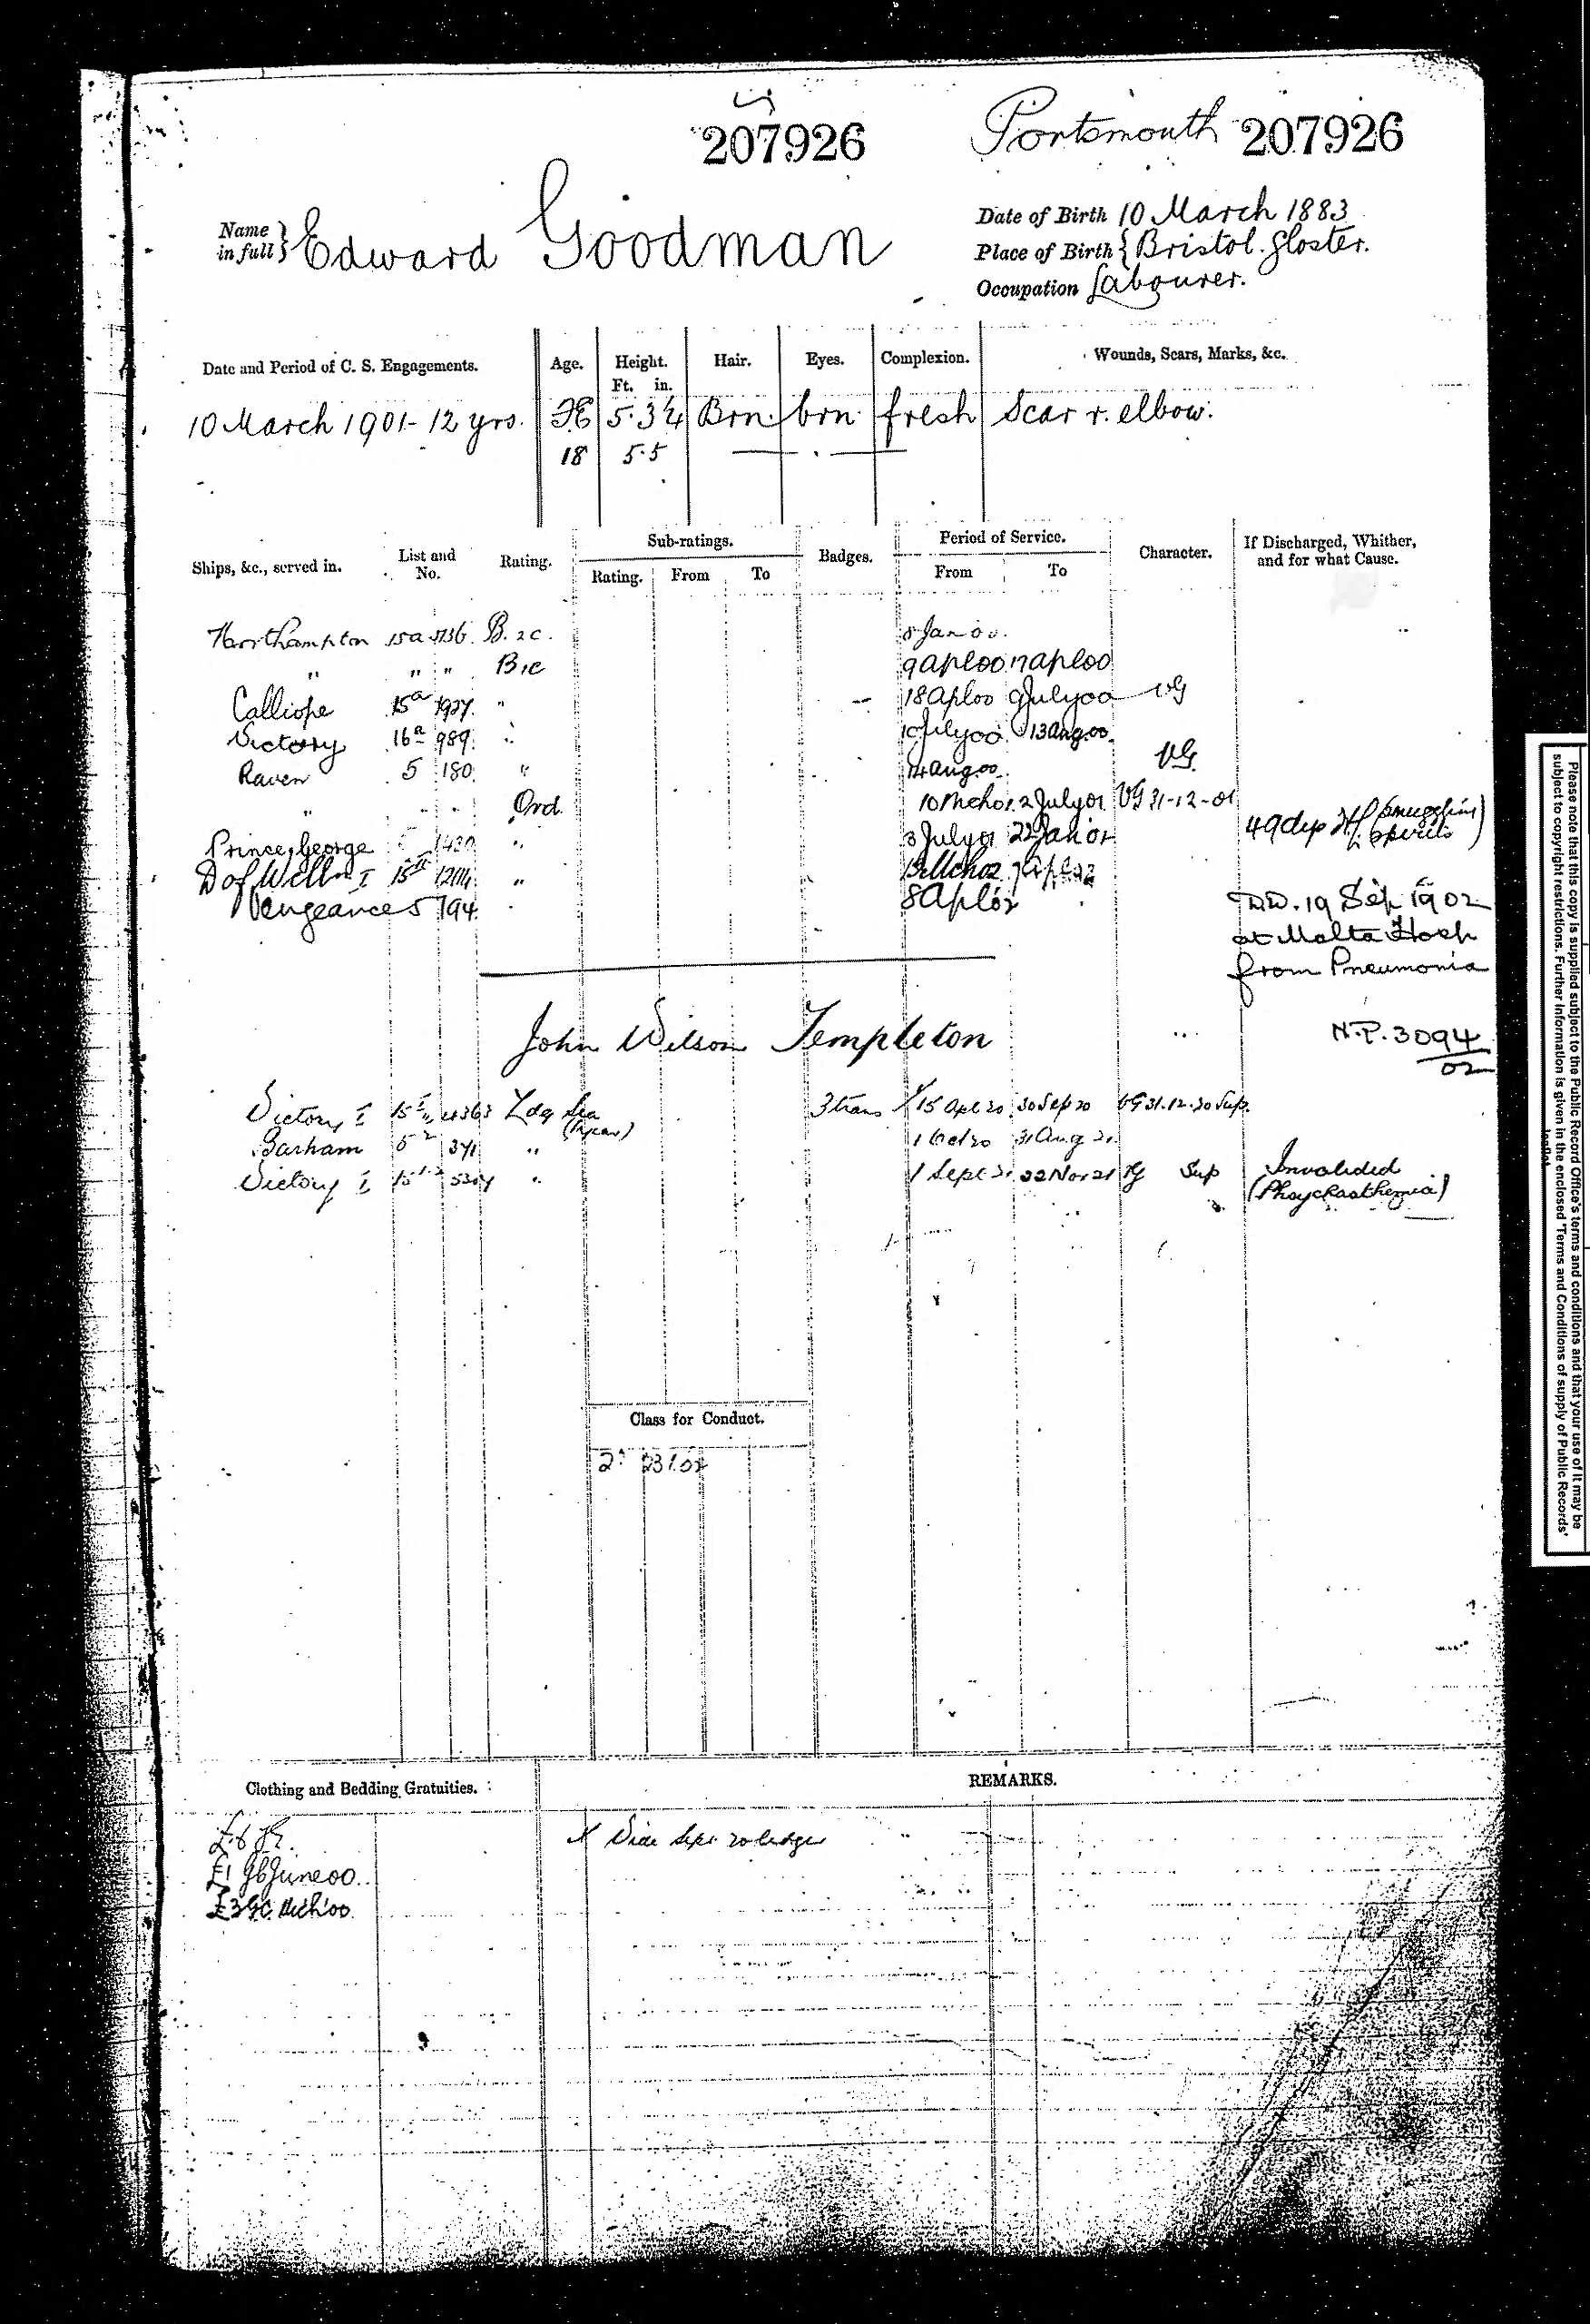 207926 Portsmouth 207926
Name in full } Edward Goodman
Date of Birth 10 March 1883
Place of Birth { Bristol. Gloster.
Occupation Labourer.
Date and Period of C. S. Engagements. Age. Height. Ft. in. Hair. Eyes. Complexion. Wounds, Scars, Marks, &c.
10 March 1901 - 12 yrs. 5·3¼ Brn. brn fresh Scar r. elbow.
18 5·5
Ships, &c., served in. List and No. Rating. Sub-ratings. Rating. From To Badges. Period of Service. From To Character. If Discharged, Whither, and for what Cause.
Northampton 15a B. 2c. 8 Jan 00.
" " " B1c 9 Apl 00 17 Apl 00
Calliope 15a 1927. " 18 Apl 00 9 July 00 VG
Victory 16a 989. " 10 July 00 13 Aug. 00.
Raven 5 180. " 14 Aug. 00. VG.
" " " Ord. 10 Mch 01. 2 July 01 VG 31-12-01
Prince George 1420 " 3 July 01 22 Jan 02 49 dys (smuggling spirits)
D of Welln I 15a " 7 Apl 02
Vengeance 5 194. " 8 Apl 02 DD. 19 Sep 1902
at Malta Hosp
from Pneumonia
John Wilson Templeton
N.P. 3094/02
Victory I Ldg Sea 3 trans X 15 Apl 20 30 Sep 20 VG 31.12.20 Sup.
5² 341 " 1 Oct 20 31 Aug 21.
Victory I " 1 Sept 21 22 Nov 21 VG Sup Invalided
(Phsychasthenia)
Class for Conduct.
2 23 1.02
Clothing and Bedding Gratuities. REMARKS.
X Vide Sept 20 ledger
£1 June 00.
£3 Mch 00.
Please note that this copy is supplied subject to the Public Record Office's terms and conditions and that your use of it may be
subject to copyright restrictions. Further information is given in the enclosed 'Terms and Conditions of supply of Public Records'
leaflet